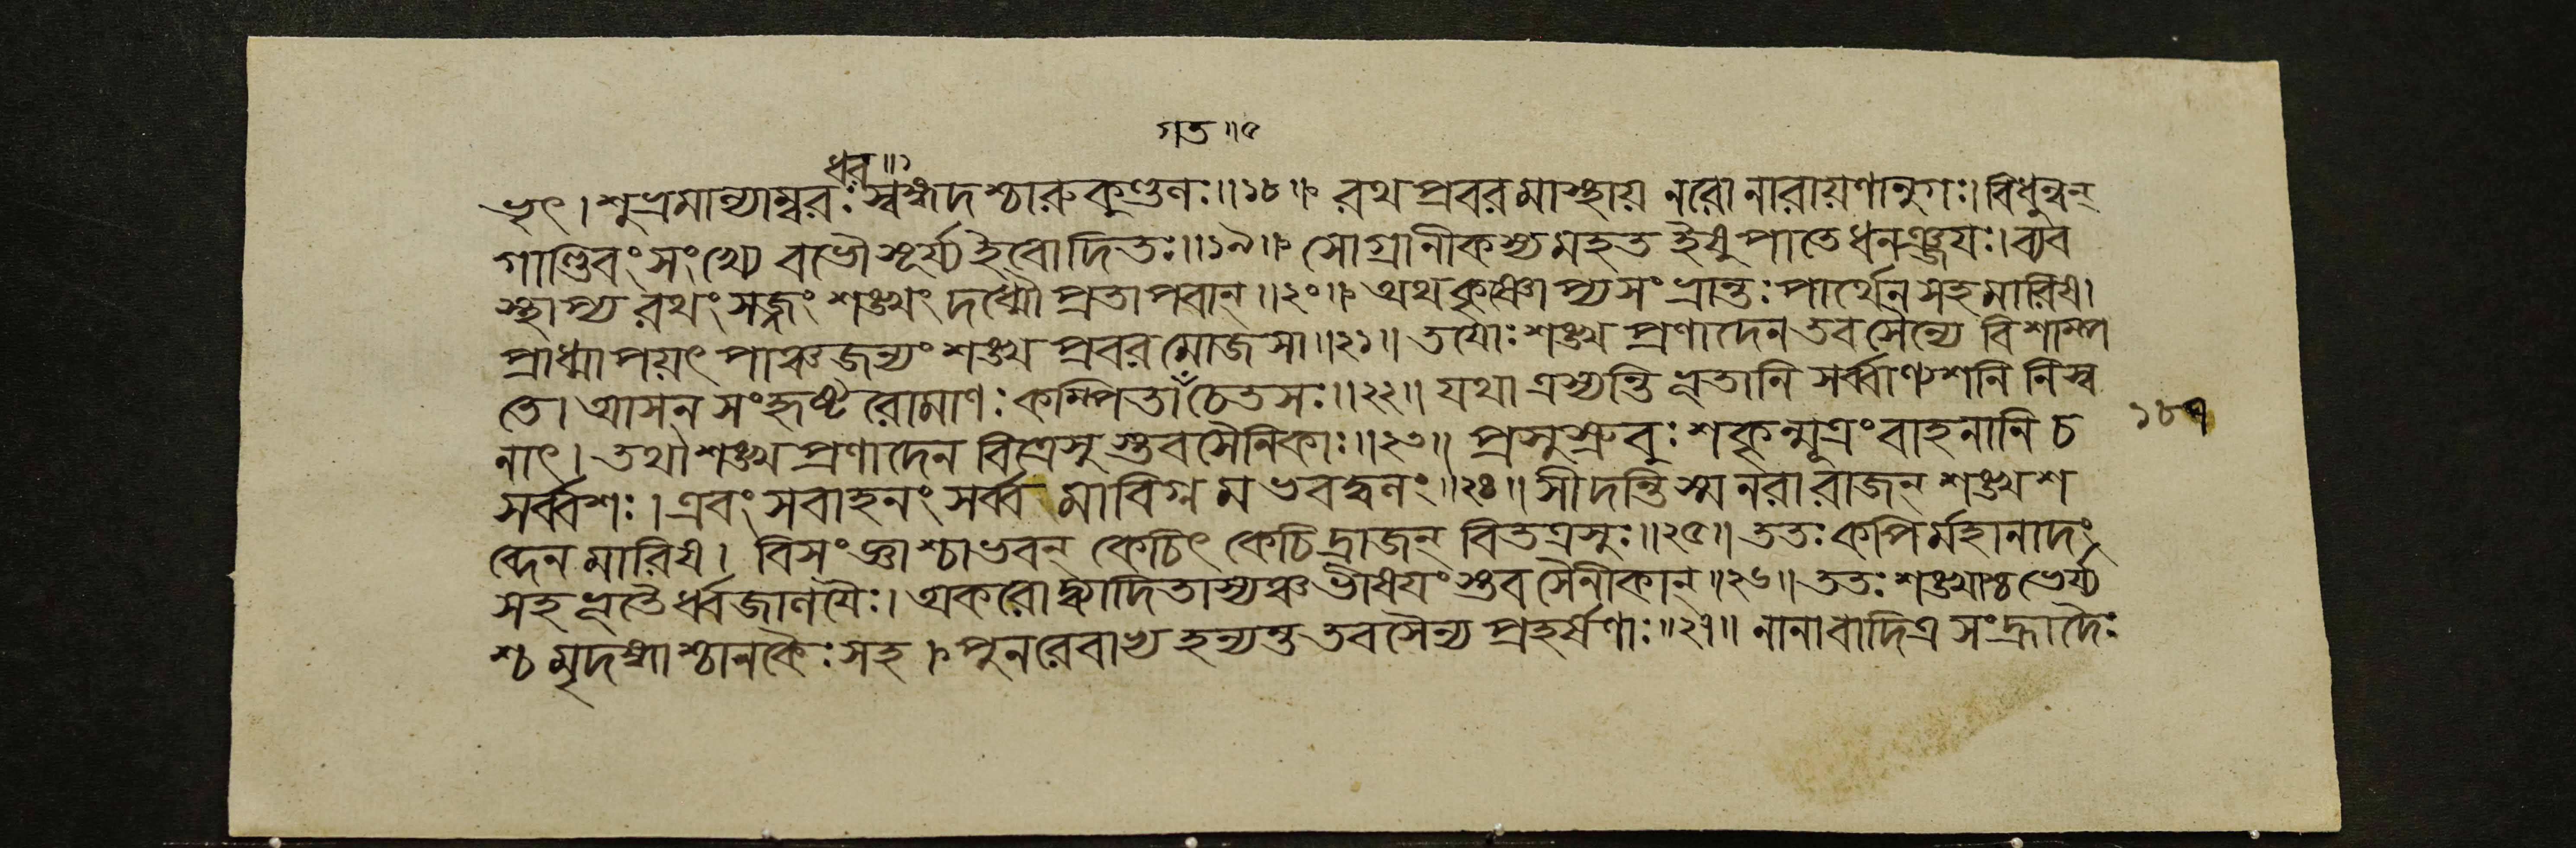 গত॥৫
ধর॥১
ভৃৎ। শুভ্রমাল্যাম্বরঃ স্বঙ্গদশ্চারুকুণ্ডলঃ॥১৮॥ রথপ্রবরমাস্থায় নরো নারায়ণানুগঃ। বিধুন্বন্
গাণ্ডিবং সংখ্যে বভৌ সূর্য্য ইবোদিতঃ॥১৯॥ সোগ্রানীকস্য মহত ইষুপাতে ধনঞ্জয়ঃ। ব্যব
স্থাপ্য রথং সজ্জং শঙ্খং দধ্মৌ প্রতাপবান্॥২০॥ অথ কৃষ্ণোপ্যসংভ্রান্তঃ পার্থেন সহ মারিষ।
প্রাধ্মাপয়ৎ পাঞ্চজন্যং শঙ্খপ্রবরমোজসা॥২১॥ তয়োঃ শঙ্খপ্রণাদেন তব সৈন্যে বিশাম্প
তে। আসন সংহৃষ্টরোমাণঃ কম্পিতা চেতসঃ॥২২॥ যথা ত্রস্যন্তি ভূতানি সর্ব্বাণ্যশনিনিস্ব
নাৎ। তথা শঙ্খপ্রণাদেন বিত্রেসুস্তব সৈনিকাঃ॥২৩॥ প্রসুস্রুবুঃ শকৃন্মূত্রং বাহনানি চ
১৮৭
সর্ব্বশঃ। এবং সবাহনং সর্ব্বমাবিগ্নমভবদ্বলং॥২৪॥ সীদন্তি স্ম নরা রাজন্ শঙ্খশ
ব্দেন মারিষ। বিসংজ্ঞাশ্চাভবন্ কেচিৎ কেচিদ্রাজন্ বিতত্রসুঃ॥২৫॥ ততঃ কপির্মহানাদং
সহ ভূতৈর্ধ্বজালয়ৈঃ। অকরোদ্ব্যাদিতাস্যশ্চ ভীষয়ংস্তব সৈনীকান্॥২৬॥ ততঃ শঙ্খাশ্চ ভের্য্য
শ্চ মৃদঙ্গাশ্চানকৈঃ সহ। পুনরেবাভ্যহন্যন্ত তব সৈন্যপ্রহর্ষণাঃ॥২৭॥ নানাবাদিত্রসংহ্রাদৈঃ